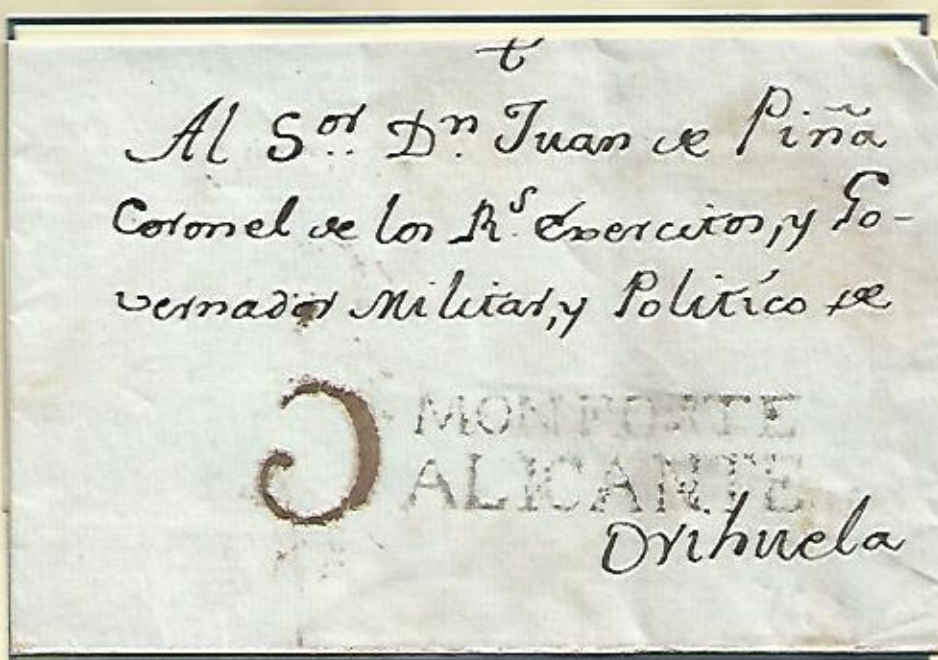 t
Al S.or D.n Juan de Piña
Coronel de los R.s Exercitos, y Go-
vernador Militar, y Politíco de
MONFORTE
ALICANTE
Orihuela